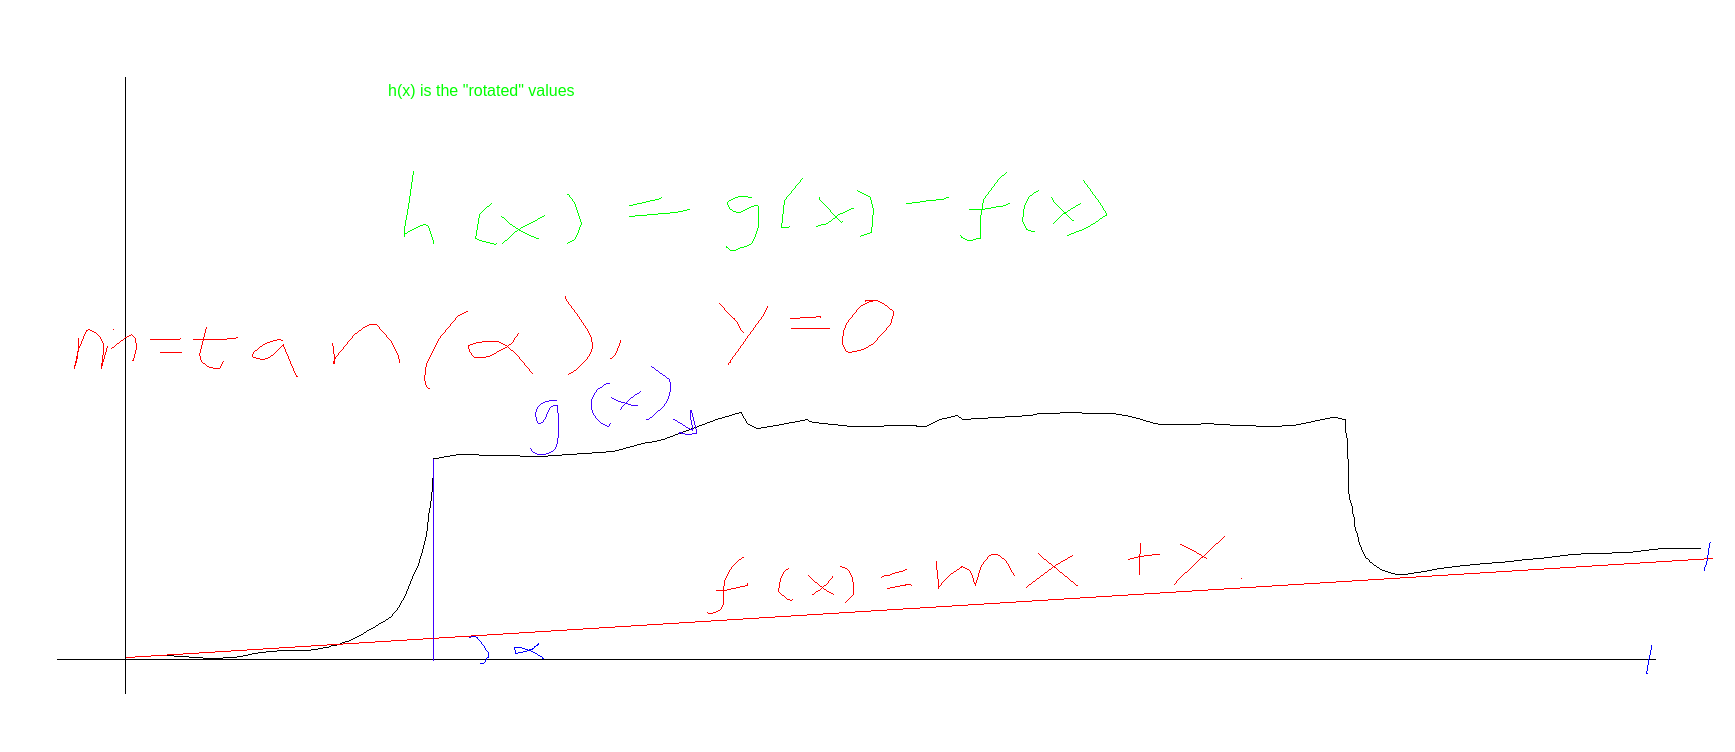 h(x) is the "rotated" values
h(x) = g(x) - f(x)
m=tan(α), y=0
g(x)
f(x)=mx+y
α